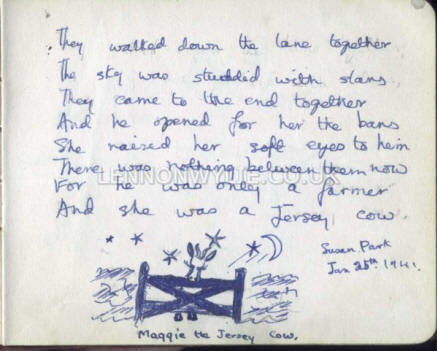 They walked down the lane together
The sky was studded with stars
They came to the end together
And he opened for her the bars
She raised her soft eyes to him
There was nothing between them now
LENNONWYLIE.CO.UK
For he was only a farmer
And she was a Jersey cow.
Susan Park
Jan 25th 1941.
Maggie the Jersey Cow.